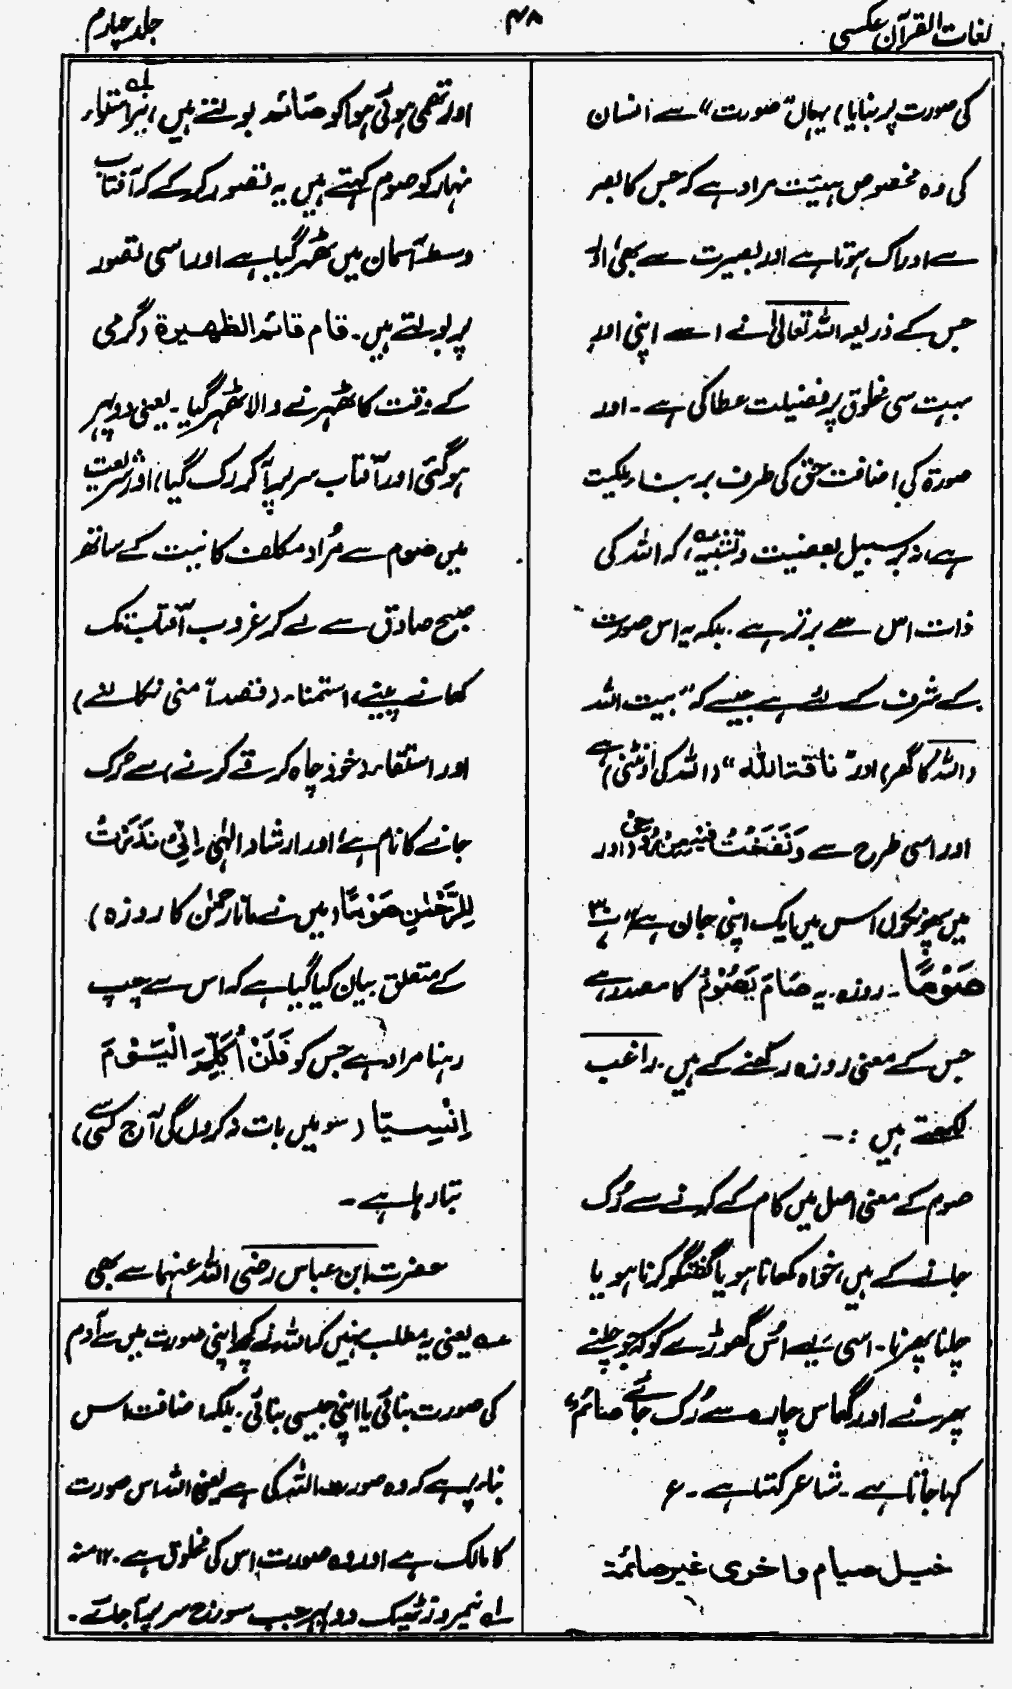 لغات القرآن عکسی
۴۸
جلد چہارم
کی صورت پر بنایا) یہاں "صورت" سے انسان
کی وہ مخصوص ہیئت مراد ہے کہ جس کا بصر
سے ادراک ہوتا ہے اور بصیرت سے بھی اور
جس کے ذریعہ اللہ تعالیٰ نے اسے اپنی اور
بہت سی مخلوق پر فضیلت عطا کی ہے۔ اور
صورۃ کی اضافت حق کی طرف بر بناء ملکیت
ہے، نہ کہ بسبیل بعضیت و تشبیہ، کہ اللہ کی
ذات اس سے برتر ہے۔ بلکہ یہ اس صورت
کے شرف کے لئے ہے جیسے کہ "بیت اللہ
(اللہ کا گھر) اور ناقۃ اللہ" (اللہ کی اونٹنی) ہے
اور اسی طرح سے وَنَفَخْتُ فِیْہِ مِنْ رُّوْحِیْ (اور
میں پھونکوں اس میں ایک اپنی جان ہے"
صَوْمًا۔ روزہ۔ یہ صَامَ یَصُوْمُ کا مصدر ہے
جس کے معنی روزہ رکھنے کے ہیں۔ راغب
لکھتے ہیں :۔
صوم کے معنی اصل میں کام کے کرنے سے رُک
جانے کے ہیں، خواہ کھانا ہو یا گفتگو کرنا ہو یا
چلنا پھرنا۔ اسی لئے اُس گھوڑے کو کہ جو چلنے
پھرنے اور گھاس چارہ سے رُک جائے صائم
کہا جاتا ہے۔ شاعر کہتا ہے۔ ع
خیل صیام واخری غیر صائمۃ
اور تھمی ہوئی ہوا کو صائمہ بولتے ہیں، نیز استواء
نہار کو صوم کہتے ہیں یہ تصور کر کے کہ آفتاب
وسط آسمان میں ٹھہر گیا ہے اور اسی تصور
پر بولتے ہیں۔ قام قائمہ الظہیرۃ (گرمی
کے وقت کا ٹھہرنے والا ٹھہر گیا۔ یعنی دوپہر
ہو گئی اور آفتاب سر پر آ کر رک گیا) اور شریعت
میں صوم سے مُراد مکلف کا نیت کے ساتھ
صبح صادق سے لے کر غروب آفتاب تک
کھانے پینے، استمنا۔ (قصداً منی نکالنے)
اور استقاء (خود چاہ کر قے کرنے) سے رک
جانے کا نام ہے اور ارشاد الٰہی اِنِّیْ نَذَرْتُ
لِلرَّحْمٰنِ صَوْمًا (میں نے مانا رحمٰن کا روزہ)
کے متعلق بیان کیا گیا ہے کہ اس سے چپ
رہنا مراد ہے جس کو فَلَنْ اُکَلِّمَ الْیَوْمَ
اِنْسِیًّا (سو میں بات نہ کروں گی آج کسی سے)
بتا رہا ہے۔
حضرت ابن عباس رضی اللہ عنہما سے بھی
عہ یعنی یہ مطلب نہیں کہ اللہ نے کچھ اپنی صورت میں سے آدم
کی صورت بنائی یا اپنی جیسی بنائی۔ بلکہ اضافت اس
بناء پر ہے کہ وہ صورت اللہ کی ہے یعنی اللہ اس صورت
کا مالک ہے اور وہ صورت اس کی مخلوق ہے۔ ۱۲ منہ
لہ نیمروز ٹھیک دوپہر جب سورج سر پر آ جائے۔